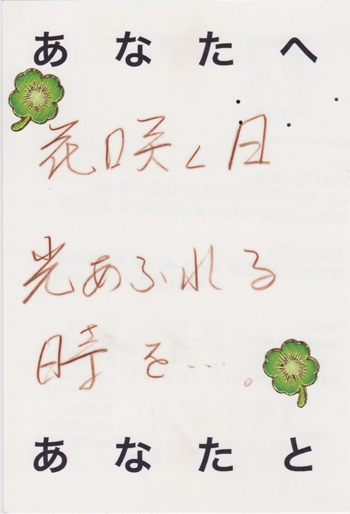 あなたへ
花咲く日
光あふれる
時を…。
あなたと